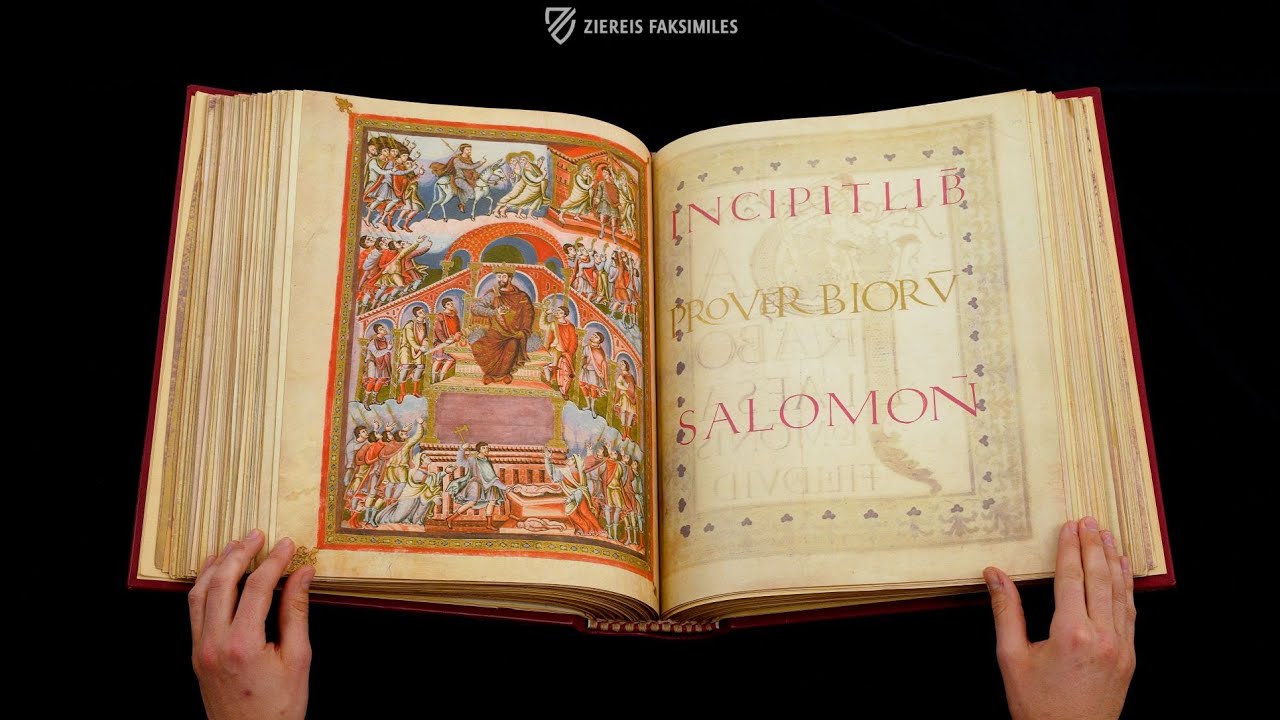 ZIEREIS FAKSIMILES
INCIPIT LIB̄
PROVERBIORV̄
SALOMON̄